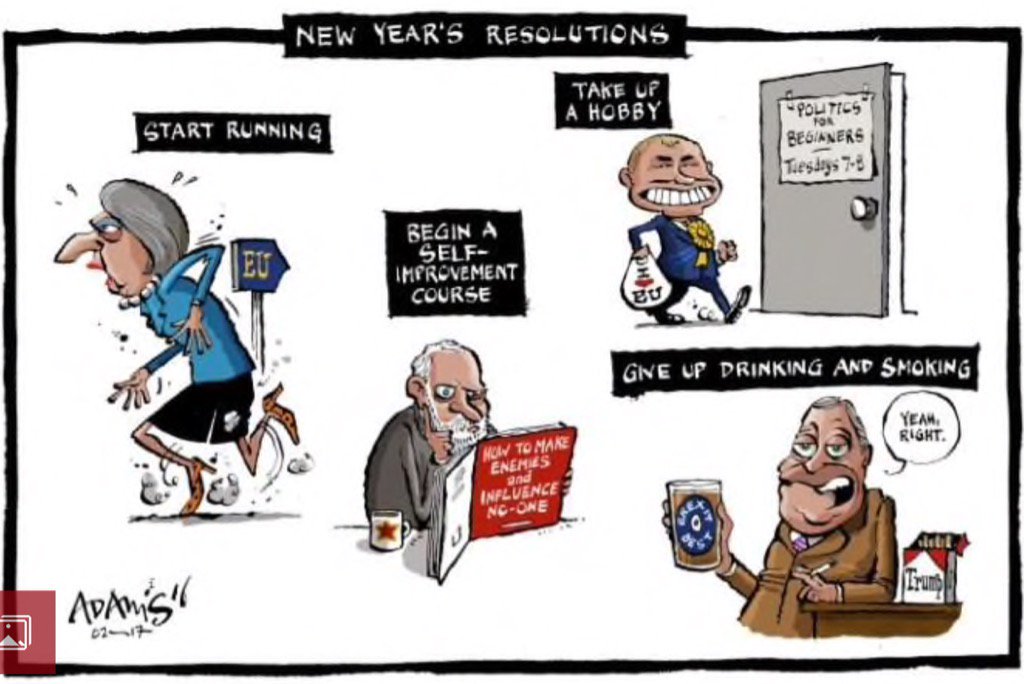 NEW YEAR'S RESOLUTIONS
START RUNNING
EU
BEGIN A
SELF-
IMPROVEMENT
COURSE
HOW TO MAKE
ENEMIES
and
INFLUENCE
NO-ONE
TAKE UP
A HOBBY
POLITICS
FOR
BEGINNERS
Tuesdays 7-8
I
EU
GIVE UP DRINKING AND SMOKING
YEAH,
RIGHT.
BREXIT
BEST
Trump
ADAMS '16
02-17